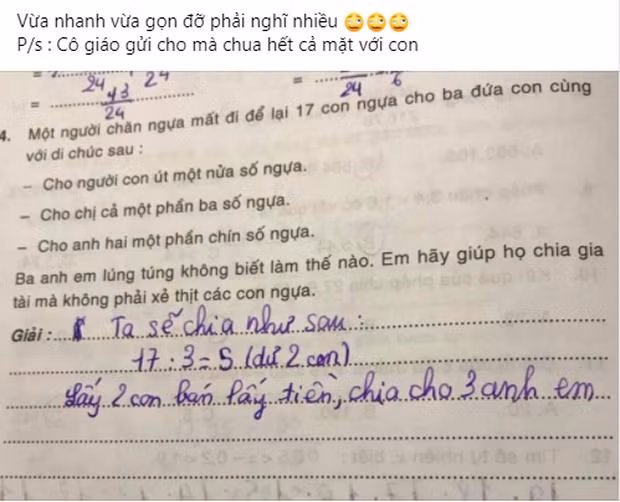 Vừa nhanh vừa gọn đỡ phải nghĩ nhiều
P/s : Cô giáo gửi cho mà chua hết cả mặt với con
24 24
= 43
24
=
24 6
4. Một người chăn ngựa mất đi để lại 17 con ngựa cho ba đứa con cùng
với di chúc sau :
– Cho người con út một nửa số ngựa.
– Cho chị cả một phần ba số ngựa.
– Cho anh hai một phần chín số ngựa.
Ba anh em lúng túng không biết làm thế nào. Em hãy giúp họ chia gia
tài mà không phải xẻ thịt các con ngựa.
Giải : Ta sẽ chia như sau :
17 : 3 = 5 (dư 2 con)
Lấy 2 con bán lấy tiền, chia cho 3 anh em